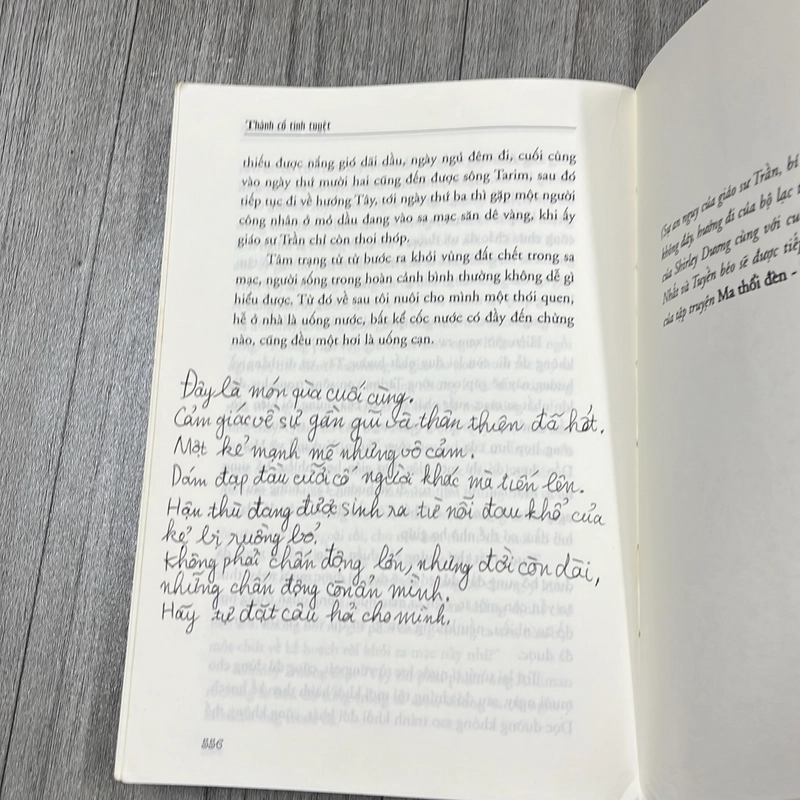 Thành cổ tinh tuyệt
thiếu được nắng gió dãi dầu, ngày ngủ đêm đi, cuối cùng
vào ngày thứ mười hai cũng đến được sông Tarim, sau đó
tiếp tục đi về hướng Tây, tới ngày thứ ba thì gặp một người
công nhân ở mỏ dầu đang vào sa mạc săn dê vàng, khi ấy
giáo sư Trần chỉ còn thoi thóp.
Tâm trạng từ từ bước ra khỏi vùng đất chết trong sa
mạc, người sống trong hoàn cảnh bình thường không dễ gì
hiểu được. Từ đó về sau tôi nuôi cho mình một thói quen,
hễ ở nhà là uống nước, bất kể cốc nước có đầy đến chừng
nào, cũng đều một hơi là uống cạn.
Đây là món qùa cuối cùng.
Cảm giác về sự gần gũi và thân thiện đã hết.
Một kẻ mạnh mẽ nhưng vô cảm.
Dám đạp đầu cưỡi cổ người khác mà tiến lên.
Hận thù đang được sinh ra từ nỗi đau khổ của
kẻ bị ruồng bỏ.
Không phải chấn động lớn, nhưng đời còn dài,
những chấn động còn ẩn mình.
Hãy tự đặt câu hỏi cho mình.
556
(Sự an nguy của giáo sư Trần, bí
không đáy, hướng đi của bộ lạc
của Shirley Dương cùng với cu
Nhất và Tuyền béo sẽ được tiếp
của tập truyện Ma thổi đèn -